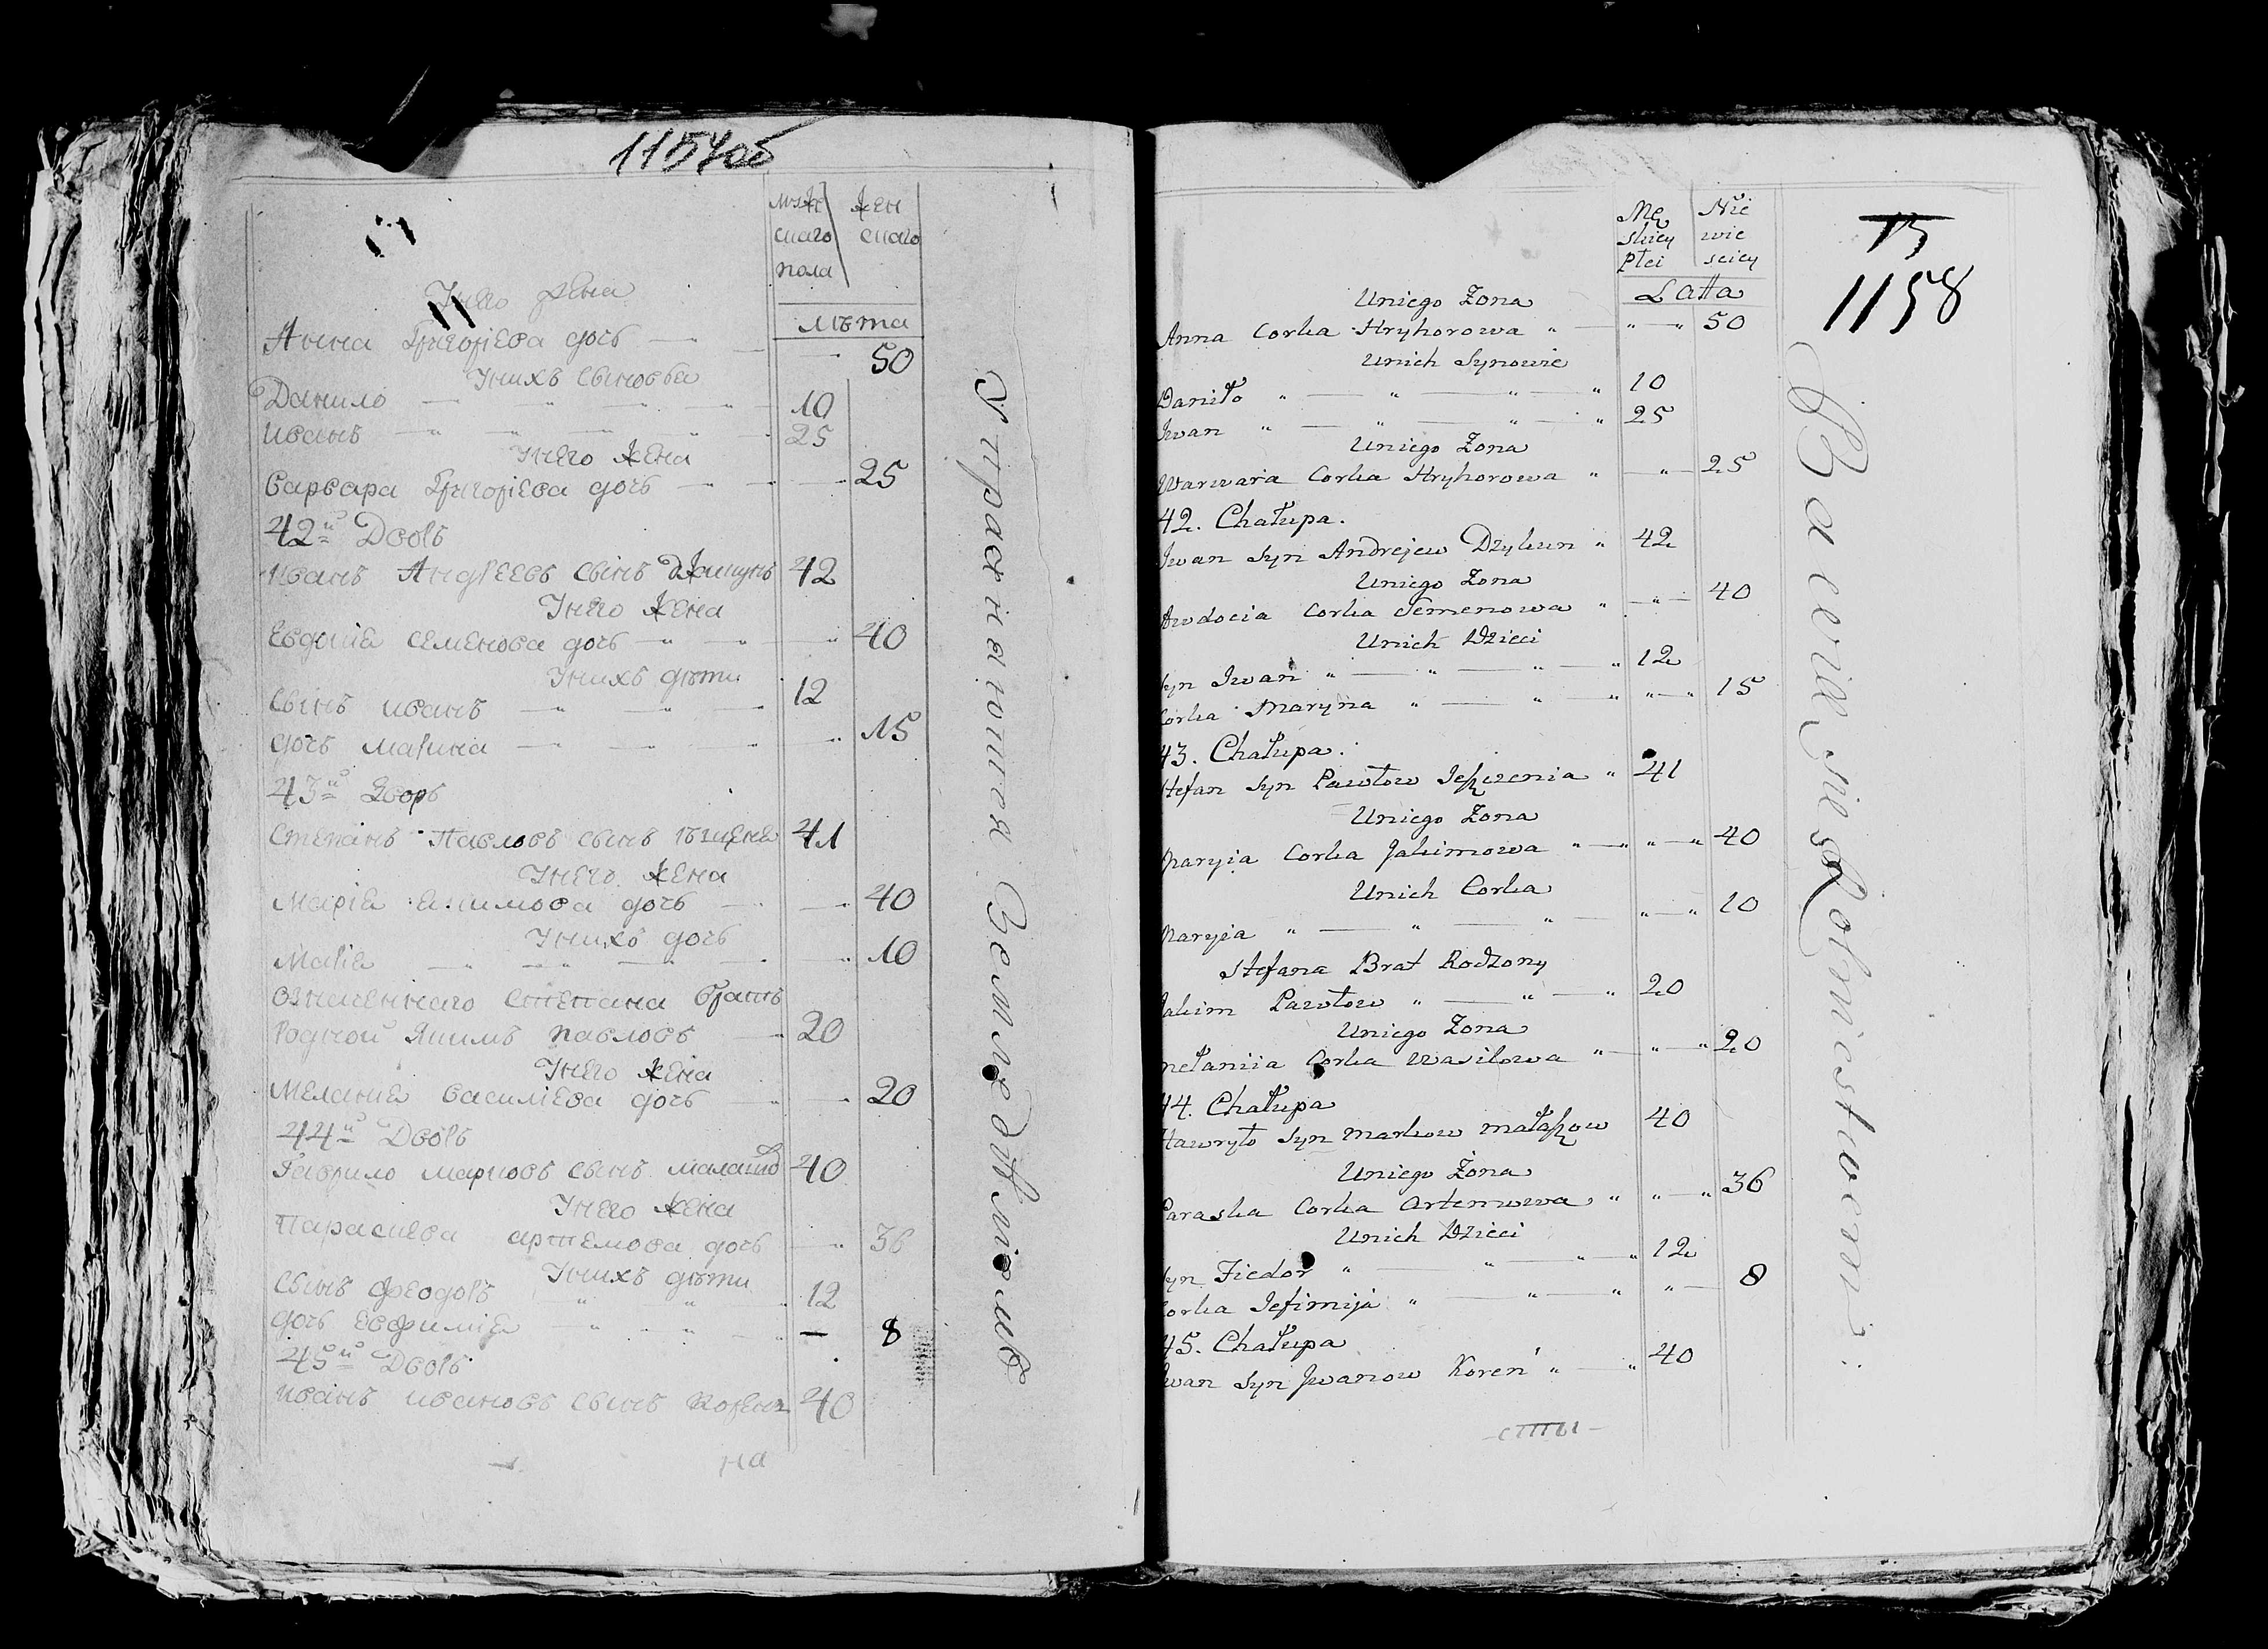 1157об
муж жен
скаго скаго
пола
лѣта
У него жена
Анна Григорiева дочь 50
У нихъ сыновья
Данило 10
Иванъ 25
У него жена
Варвара Григорiева дочь 25
42й Дворъ
Иванъ Андреевъ сынъ 42
У него жена
Евдокiя Семенова дочь 40
У нихъ дѣти
Сынъ Иванъ 12
дочь Марина 15
43й Дворъ
Степанъ Павловъ сынъ 41
У него жена
Марiя Якимова дочь 40
У нихъ дочь
Марiя 10
Означеннаго Степана братъ
Родной Якимъ Павловъ 20
У него жена
Меланiя Василiева дочь 20
44й Дворъ
Гаврило Марковъ сынъ 40
У него жена
Параскева Артемова дочь 36
У нихъ дѣти
Сынъ Феодоръ 12
дочь Евфимiя 8
45й Дворъ
Иванъ Ивановъ сынъ Корень 40
на
Упражняются Земледѣлiемъ
15
1158
Mę Nie
skiey wie
Płci sciey
Latta
Uniego Zona
Anna Corka Hryhorowa 50
Unich Synowie
Daniło 10
Iwan 25
Uniego Zona
Warwara Corka Hryhorowa 25
42. Chałupa.
Iwan Syn Andrejew Dzykun 42
Uniego Zona
Awdocia Corka Semenowa 40
Unich Dzieci
Syn Iwan 12
Corka Maryna 15
43. Chałupa.
Stefan Syn Pawłow 41
Uniego Zona
Maryia Corka Jakimowa 40
Unich Corka
Maryia 10
Stefana Brat Rodzony
Jakim Pawłow 20
Uniego Zona
Mełaniia Corka Wasilowa 20
44. Chałupa
Hawryło Syn Markow 40
Uniego Zona
Paraska Corka Artemowa 36
Unich Dzieci
Syn Fiedor 12
Corka Jefimija 8
45. Chałupa
Iwan Syn Iwanow Koreń 40
Bawił sie Rolnictwem